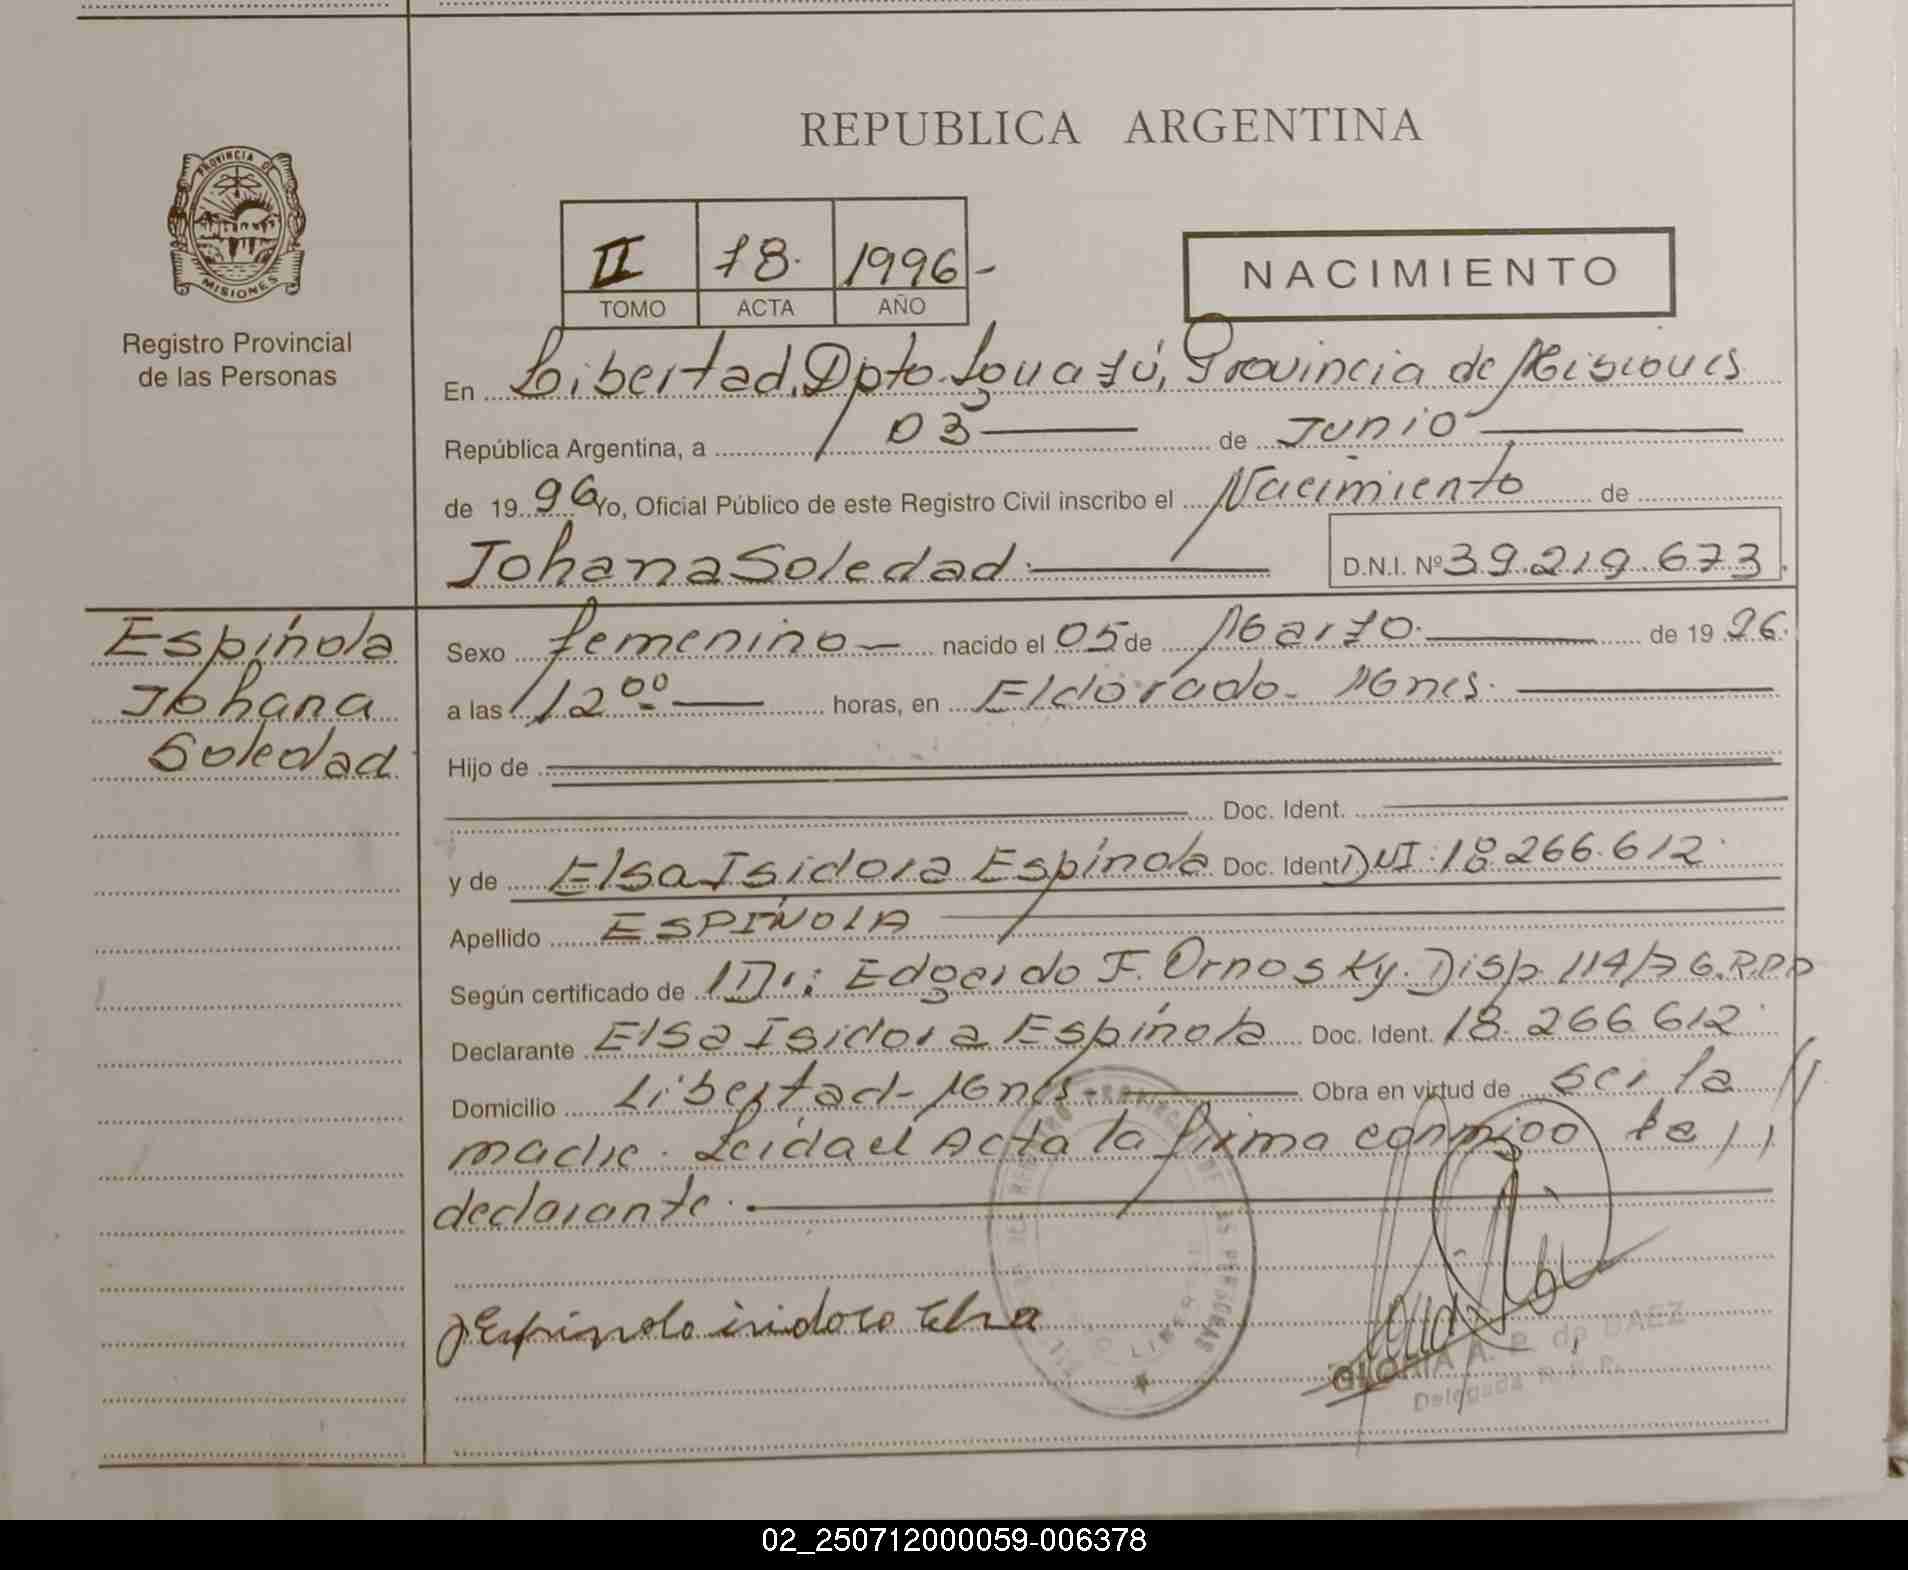 REPUBLICA ARGENTINA
PROVINCIA DE
MISIONES
Registro Provincial
de las Personas
II 78. 1996-
TOMO ACTA AÑO
NACIMIENTO
En Libertad, Dpto. Iguazú, Provincia de Misiones
República Argentina, a 03 de Junio
de 1996 Yo, Oficial Público de este Registro Civil inscribo el Nacimiento de
Johana Soledad.
D.N.I. Nº 39.219.673
Espínola
Johana
Soledad
Sexo femenino nacido el 05 de Marzo. de 1996.
a las 12 00 horas, en Eldorado- Mnes.
Hijo de
Doc. Ident.
y de Elsa Isidora Espínola Doc. Ident DNI: 18.266.612.
Apellido ESPÍNOLA
Según certificado de Dr.: Edgardo F. Ornosky. Disp. 114/7 G.R.P.P
Declarante Elsa Isidora Espínola Doc. Ident. 18.266.612.
Domicilio Libertad- Mnes. Obra en virtud de ser la //
madre. Leída el Acta la firma conmigo la //
declarante.
Espinola isidora Elsa
GLORIA A. P. de BAEZ
Delegada R. P. P.
02_250712000059-006378